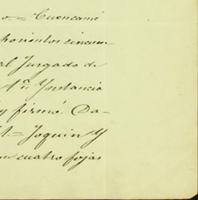 o.= Cuencamé
hocientos cincuen
al Juzgado de
1ª Ynstancia
y firmó. Da-
Joquin Y
cuatro fojas